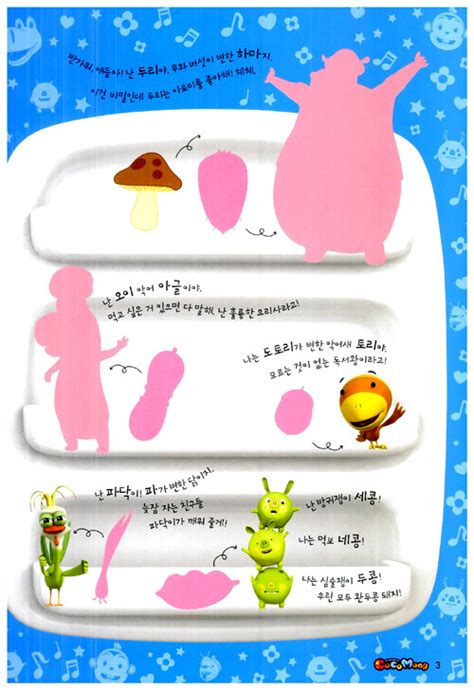 반가워, 얘들아! 난 두리야. 무와 버섯이 변한 하마지.
이건 비밀인데 두리는 아로미를 좋아해! 헤헤.
난 오이 악어 아글이야.
먹고 싶은 거 있으면 다 말해. 난 훌륭한 요리사라고!
나는 도토리가 변한 악어새 토리야.
모르는 것이 없는 독서왕이라고!
난 파닥이! 파가 변한 닭이지.
늦잠 자는 친구들
파닥이가 깨워 줄게!!
난 방귀쟁이 세콩!
나는 먹보 네콩!
나는 심술쟁이 두콩!
우린 모두 완두콩 돼지!
CocoMong 3